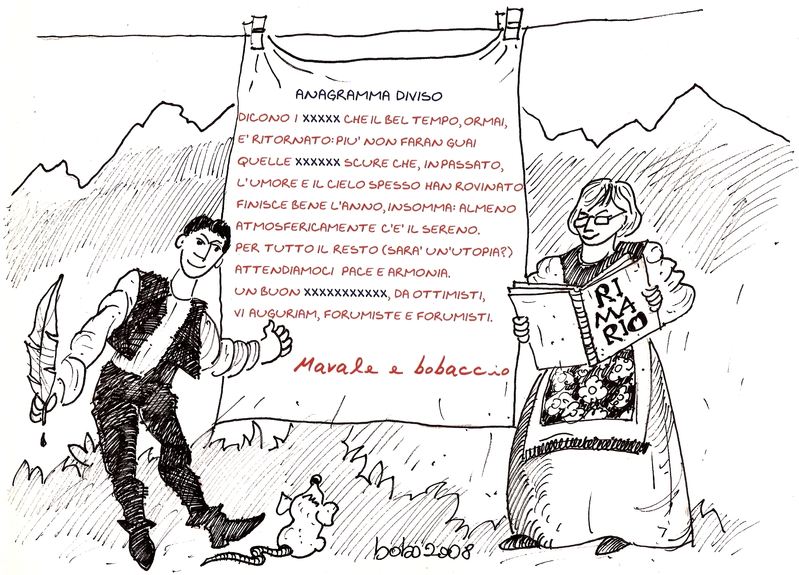 ANAGRAMMA DIVISO
DICONO I XXXXX CHE IL BEL TEMPO, ORMAI,
E' RITORNATO: PIU' NON FARAN GUAI
QUELLE XXXXXX SCURE CHE, IN PASSATO,
L'UMORE E IL CIELO SPESSO HAN ROVINATO
FINISCE BENE L'ANNO, INSOMMA: ALMENO
ATMOSFERICAMENTE C'E' IL SERENO.
PER TUTTO IL RESTO (SARA' UN'UTOPIA?)
ATTENDIAMOCI PACE E ARMONIA.
UN BUON XXXXXXXXXXX, DA OTTIMISTI,
VI AUGURIAM, FORUMISTE E FORUMISTI.
Mavale e bobaccio
RI
MA
RIO
bobo'2008